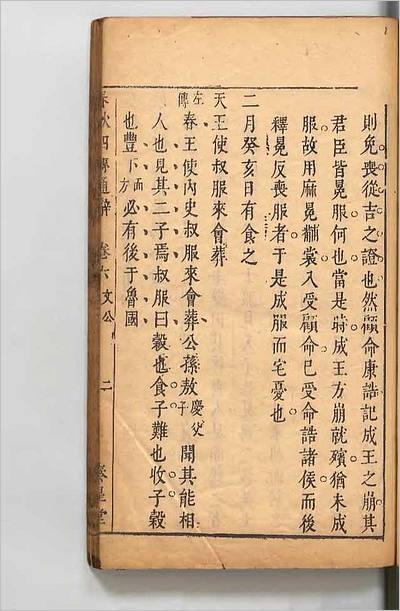 則免喪從吉之證也然顧命康誥記成王之崩其
君臣皆冕服何也當是時成王方崩就殯猶未成
服故用麻冕黼裳入受顧命已受命誥諸侯而後
釋冕反喪服者于是成服而宅憂也
二月癸亥日有食之
天王使叔服來會葬
左傳春王使內史叔服來會葬公孫敖慶父子聞其能相
人也見其二子焉叔服曰穀也食子難也收子穀
也豐下面方必有後于魯國
春秋四傳通辭 卷六 文公 二